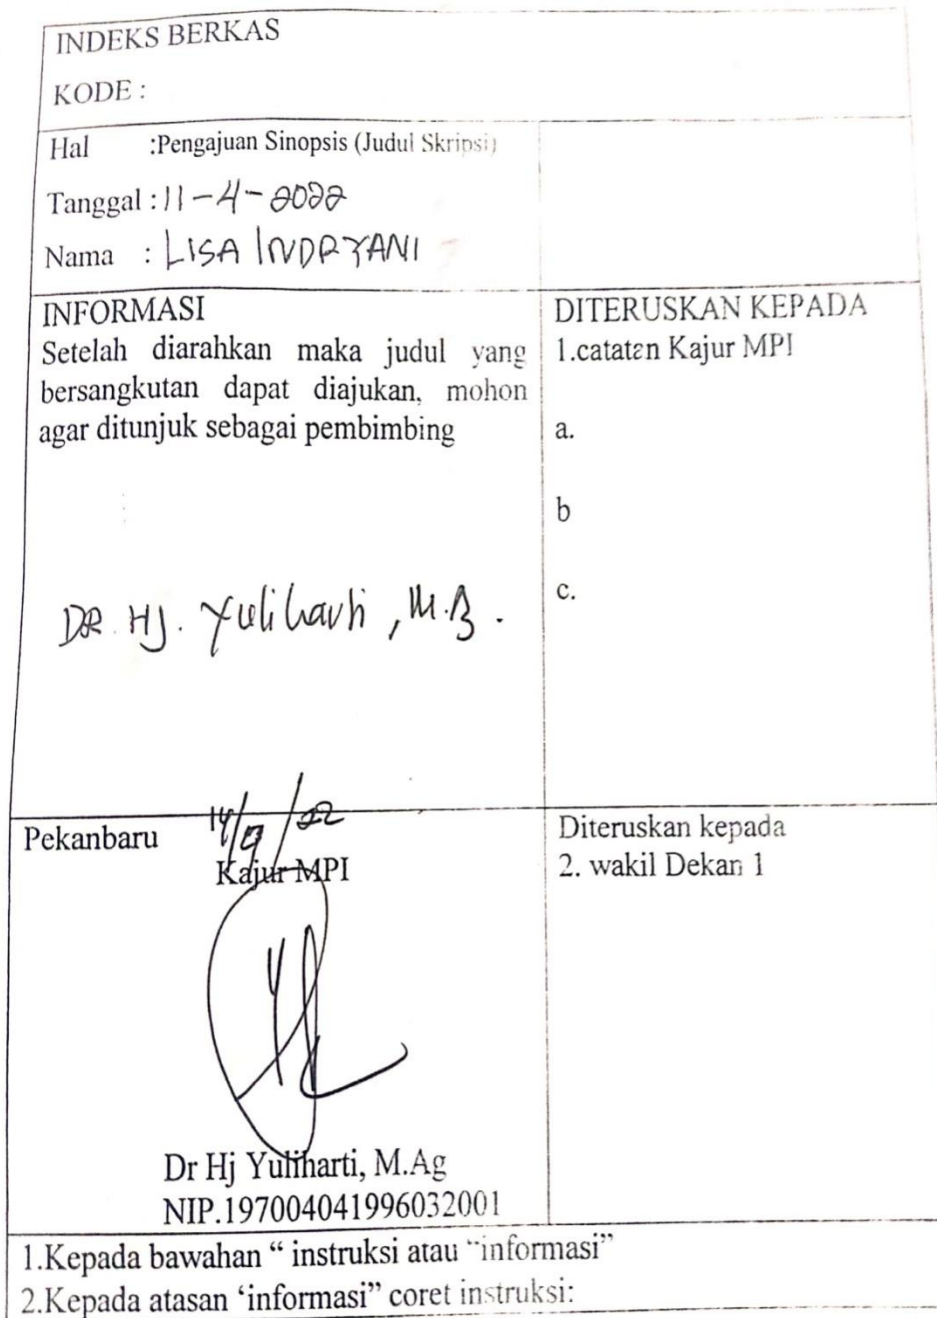 INDEKS BERKAS
KODE :
Hal :Pengajuan Sinopsis (Judul Skripsi)
Tanggal : 11-4-2022
Nama : LISA INDRYANI
INFORMASI
Setelah diarahkan maka judul yang
bersangkutan dapat diajukan, mohon
agar ditunjuk sebagai pembimbing
DR. HJ. Yuliharti, M.Ag.
DITERUSKAN KEPADA
1.cataten Kajur MPI
a.
b
c.
Pekanbaru
Kajur MPI
Dr Hj Yuliharti, M.Ag
NIP.197004041996032001
Diteruskan kepada
2. wakil Dekan 1
1.Kepada bawahan “ instruksi atau “informasi”
2.Kepada atasan ‘informasi” coret instruksi: